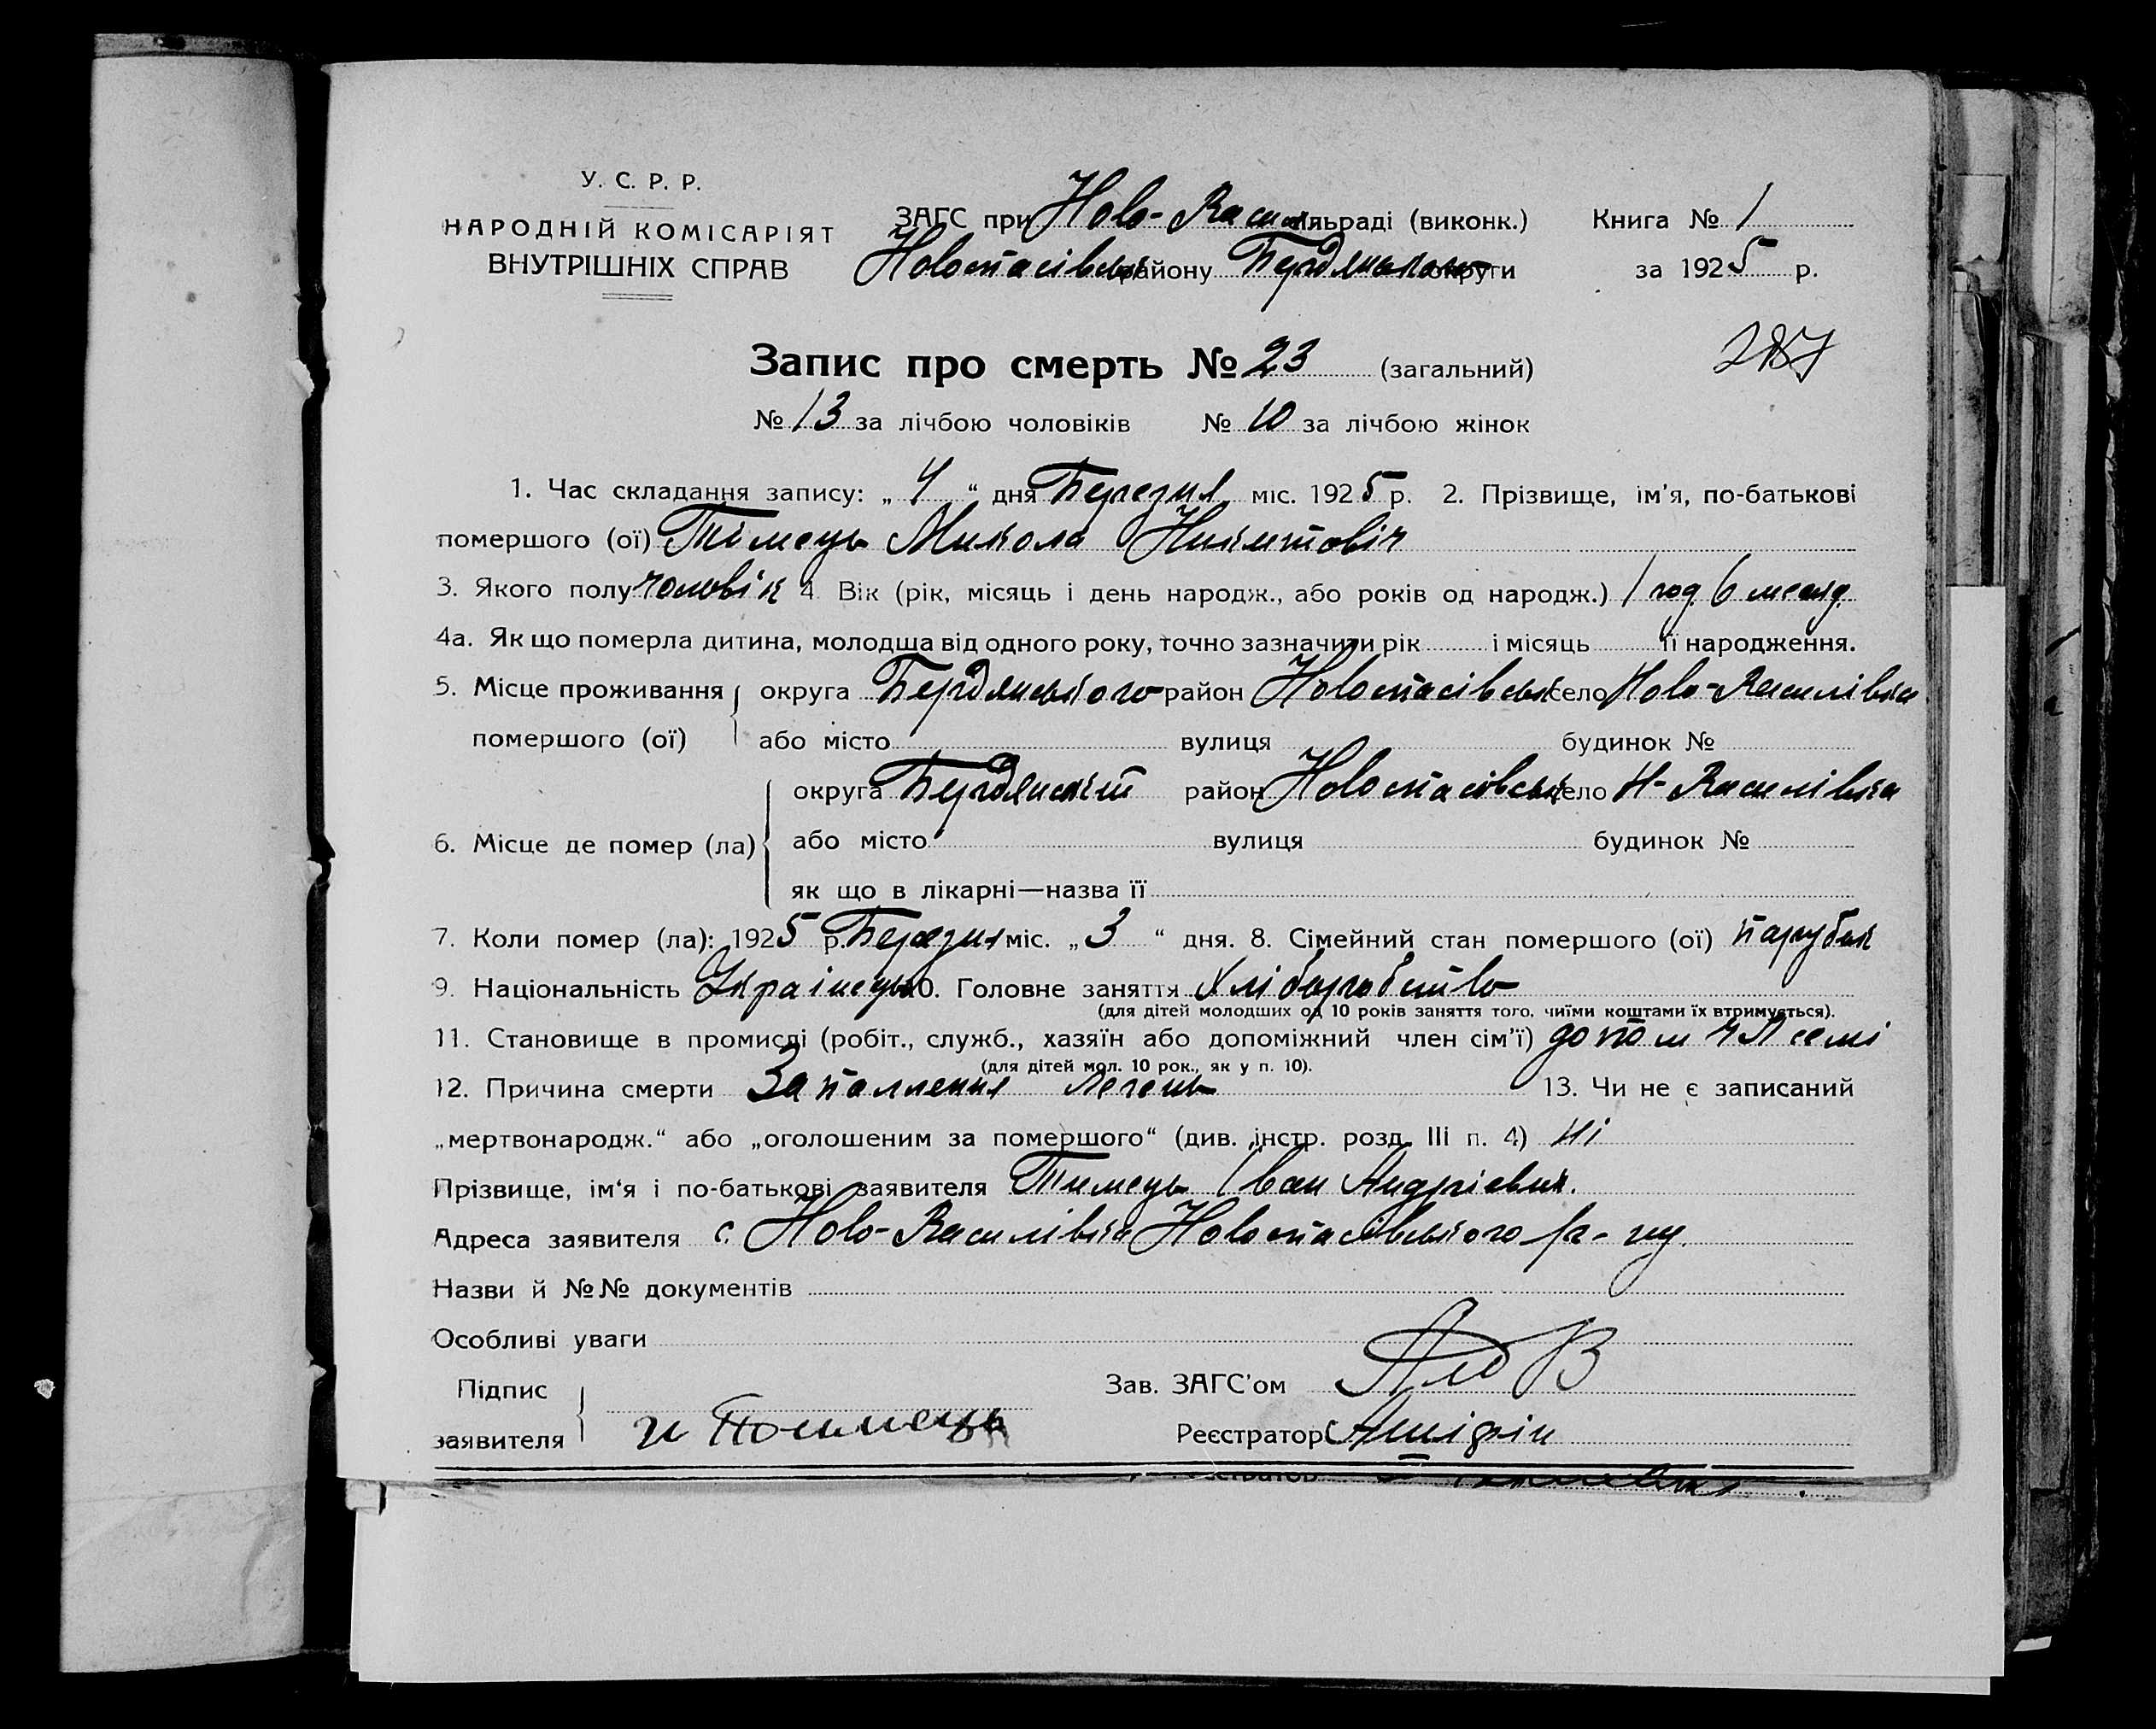 У. С. Р. Р.
НАРОДНІЙ КОМІСАРІЯТ
ВНУТРІШНІХ СПРАВ
ЗАГС при Ново-Васил сільраді (виконк.) Книга № 1
Новоспасівськ району Бердянського округи за 1925 р.
287
Запис про смерть № 23 (загальний)
№ 13 за лічбою чоловіків № 10 за лічбою жінок
1. Час складання запису: „ 4 “ дня Березня міс. 1925 р. 2. Прізвище, ім'я, по-батькові
помершого (ої) Тімець Микола
3. Якого полу чоловік 4 Вік (рік, місяць і день народж., або років од народж.) 1 год. 6 месяц.
4а. Як що померла дитина, молодща від одного року, точно зазначити рік і місяць її народження.
5. Місце проживання округа Бердянського район Новоспасівськ село Ново-Василівка
помершого (ої) або місто вулиця будинок №
округа район Новоспасівськ село Н-Василівка
6. Місце де помер (ла) або місто вулиця будинок №
як що в лікарні—назва її
7. Коли помер (ла): 1925 р. Березня міс. „ 3 “ дня. 8. Сімейний стан помершого (ої) парубок
9. Національність Українець 10. Головне заняття Хліборобство
(для дітей молодших од 10 років заняття того, чиїми коштами їх втримується).
11. Становище в промислі (робіт., служб., хазяїн або допоміжний член сім'ї) допом чл семі
(для дітей мол. 10 рок., як у п. 10).
12. Причина смерти Запаллення легень 13. Чи не є записаний
„мертвонародж.“ або „оголошеним за помершого“ (див. інстр. розд. III п. 4) ні
Прізвище, ім'я і по-батькові заявителя Тимець Іван Андрієвич.
Адреса заявителя с. Ново-Василівка Новоспасівського р-ну.
Назви й №№ документів
Особливі уваги
Підпис Зав. ЗАГС'ом
заявителя Реєстратор